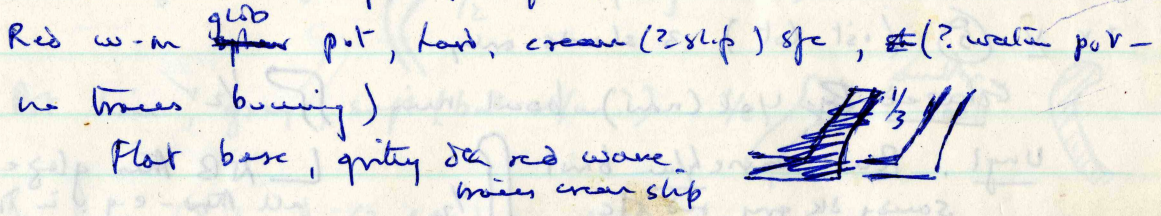 glob
Red w-m pot, hard, cream (? slip) sfc, (? water pot -
no traces burning)
1/3
Flat base, gritty dk red ware
traces cream slip